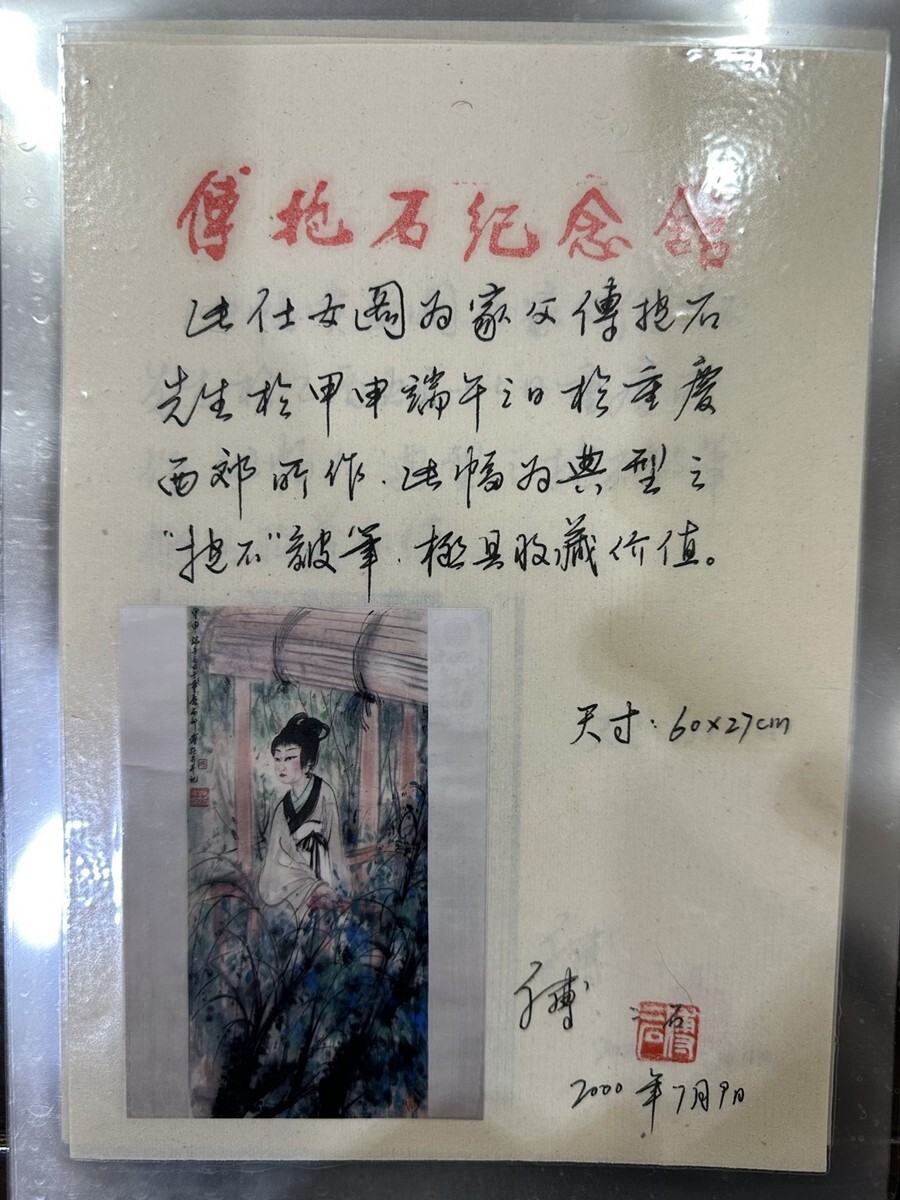 傅抱石纪念馆
此仕女图为家父傅抱石
先生於甲申端午三日於重慶
西郊所作.此幅为典型之
"抱石"皴筆.極具收藏价值。
尺寸:60×27cm
2000年7月9日